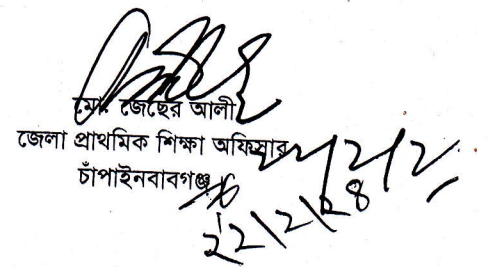 মো. জেছের আলী
জেলা প্রাথমিক শিক্ষা অফিসার
চাঁপাইনবাবগঞ্জ
২২|২|২৪